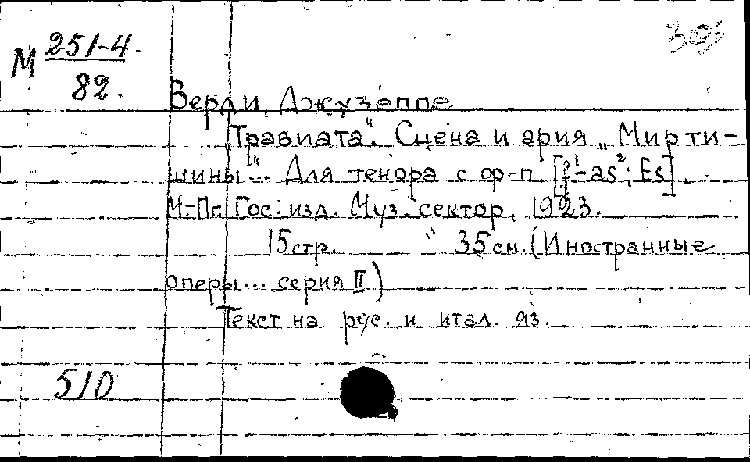 М 251-4.
82.
303
Верди, Джузеппе
"Травиата". Сцена и ария "Мир ти-
шины"... Для тенора с ф-п
-as²; Es].
М.-Пг. Гос. изд. Муз. сектор, 1923.
15 стр. 35 см. (Иностранные
оперы... серия II)
Текст на рус. и итал. яз.
510